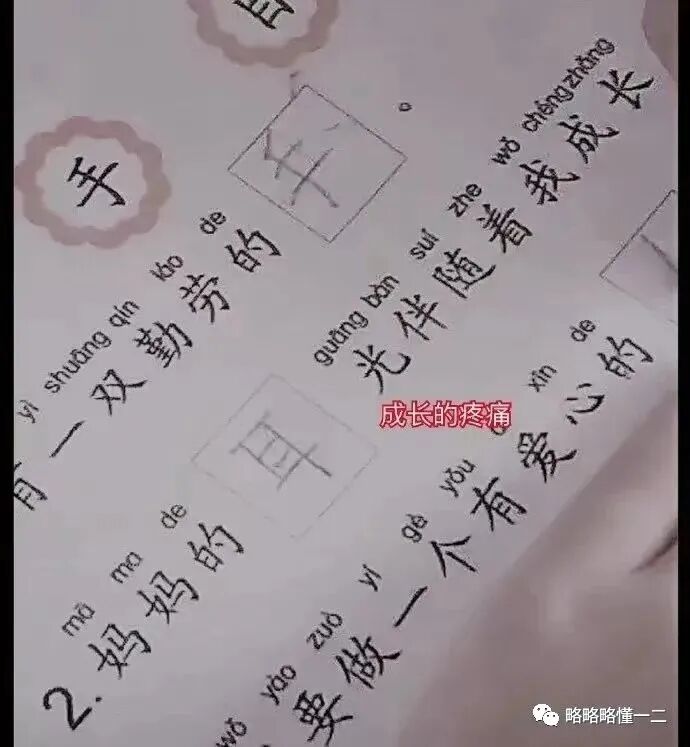 手
yì shuāng qín láo de
有一双勤劳的手。
mā ma de guāng bàn suí zhe wǒ chéng zhǎng
2.妈妈的耳光伴随着我成长
wǒ yào zuò yí gè yǒu xīn de
要做一个有爱心的
成长的疼痛
略略略懂一二